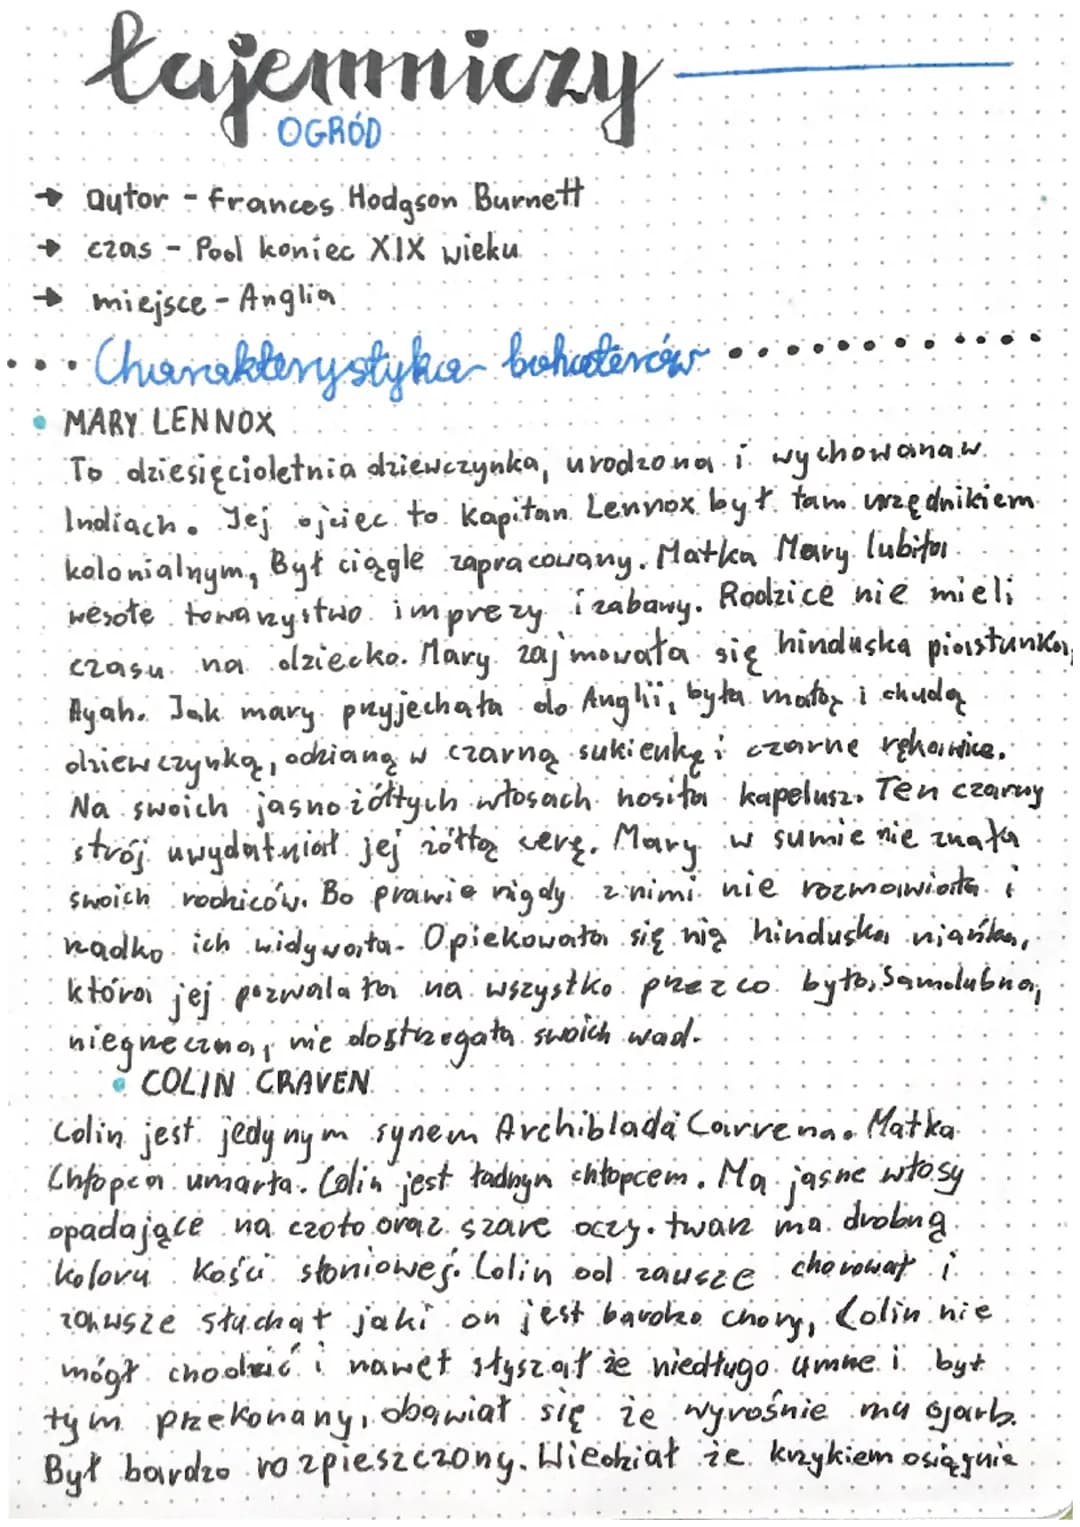 tajemniczy
OGRÓD
→ autor - Frances Hodgson Burnett
→ czas - Pod koniec XIX wieku
→ miejsce - Anglia
Charakterystyka bohaterów
• MARY LENNOX
To dziesięcioletnia dziewczynka, urodzona i wychowana w
Indiach. Jej ojciec to kapitan Lennox był tam urzędnikiem
kolonialnym, Był ciągle zapracowany. Matka Mary lubiła
wesołe towarzystwo imprezy i zabawy. Rodzice nie mieli
czasu na dziecko. Mary zajmowała się hinduska piastunka,
Ayah. Jak mary przyjechała do Anglii, była małą i chudą
dziewczynką, odzianą w czarną sukienkę i czarne rękawice.
Na swoich jasnożółtych włosach nosiła kapelusz. Ten czarny
strój uwydatniał jej żółtą cerę. Mary w sumie nie znała
swoich rodziców. Bo prawie nigdy z nimi nie rozmawiała i
rzadko ich widywała. Opiekowała się nią hinduska niańka,
która jej pozwalała na wszystko przez co była, Samolubna,
niegrzeczna, nie dostrzegała swoich wad.
• COLIN CRAVEN
Colin jest jedynym synem Archiblada Carvena. Matka
Chłopca umarła. Colin jest ładnym chłopcem. Ma jasne włosy
opadające na czoło oraz szare oczy. twarz ma drobną
koloru kości słoniowej. Colin od zawsze chorował i
zawsze słuchał jaki on jest bardzo chory, Colin nie
mógł chodzić i nawet słyszał że niedługo umrze i był
tym przekonany, obawiał się że wyrośnie mu garb.
Był bardzo rozpieszczony. Wiedział że krzykiem osiągnie